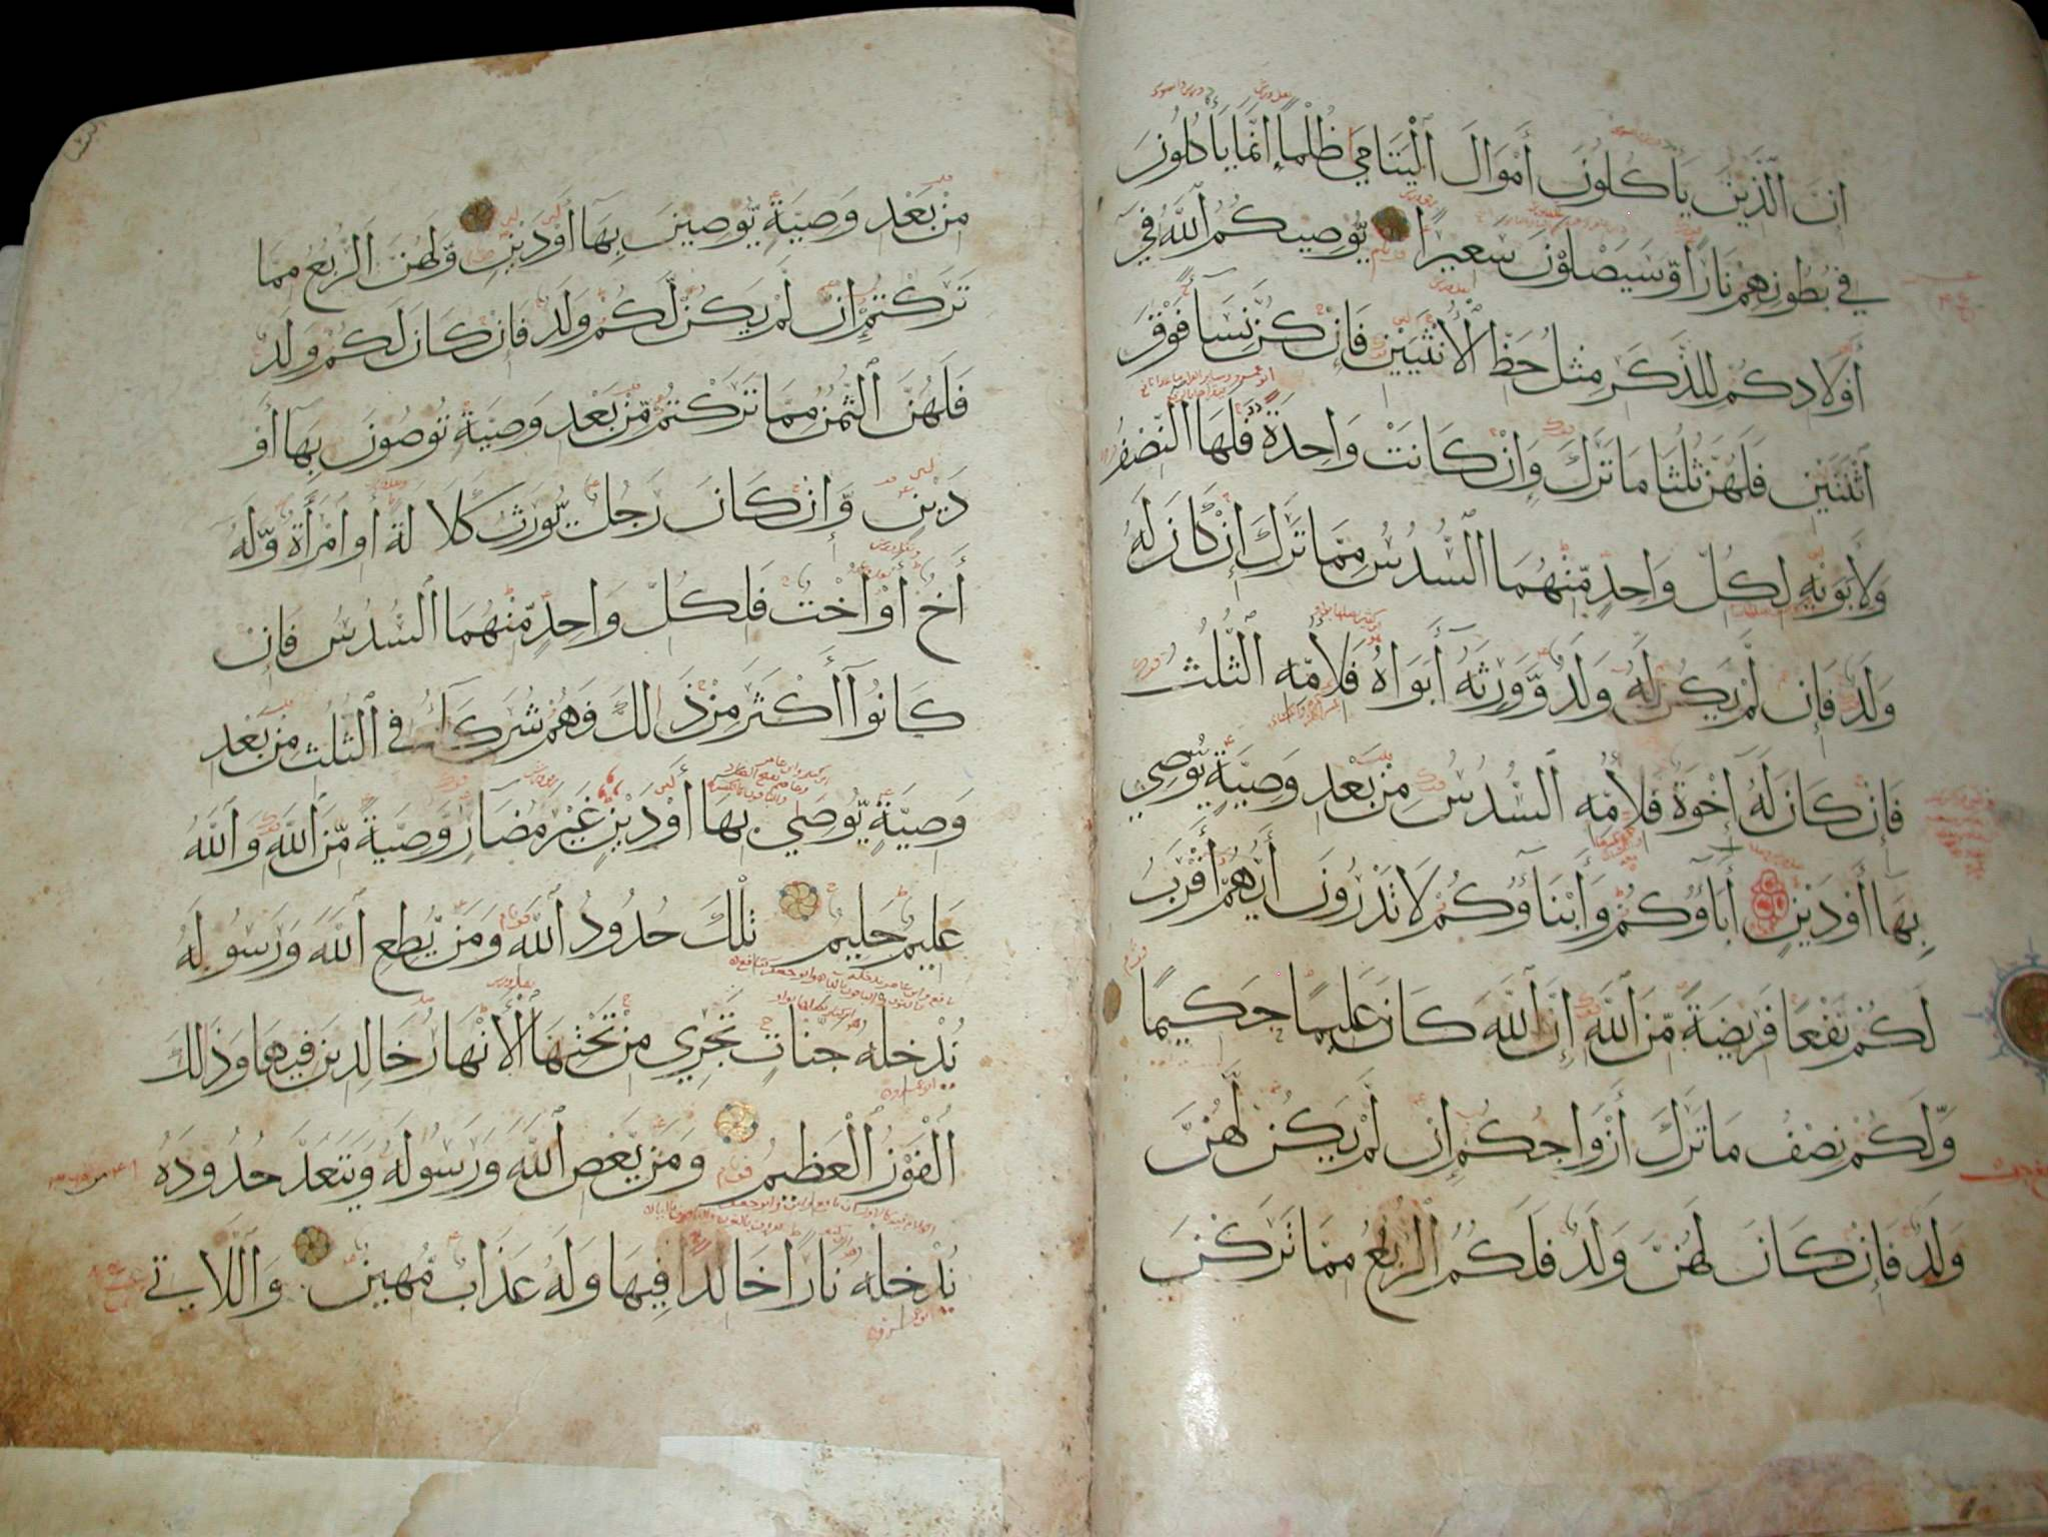 اِنَّ الَّذِينَ يَأْكُلُونَ أَمْوَالَ الْيَتَامَى ظُلْمًا إِنَّمَا يَأْكُلُونَ
فِي بُطُونِهِمْ نَارًا وَّسَيَصْلَوْنَ سَعِيرًا يُّوصِيكُمُ اللَّهُ فِي
أَوْلَادِكُمْ لِلذَّكَرِ مِثْلُ حَظِّ الْأُنْثَيَيْنِ فَإِنْ كُنَّ نِسَآءً فَوْقَ
اثْنَتَيْنِ فَلَهُنَّ ثُلُثَا مَا تَرَكَ وَإِنْ كَانَتْ وَاحِدَةً فَلَهَا النِّصْفُ
وَلِأَبَوَيْهِ لِكُلِّ وَاحِدٍ مِّنْهُمَا السُّدُسُ مِمَّا تَرَكَ إِنْ كَانَ لَهُ
وَلَدٌ فَإِنْ لَّمْ يَكُنْ لَّهُ وَلَدٌ وَّوَرِثَهُ أَبَوَاهُ فَلِأُمِّهِ الثُّلُثُ
فَإِنْ كَانَ لَهُ إِخْوَةٌ فَلِأُمِّهِ السُّدُسُ مِنْ بَعْدِ وَصِيَّةٍ يُّوصِي
بِهَا أَوْ دَيْنٍ أَبَاؤُكُمْ وَأَبْنَاؤُكُمْ لَا تَدْرُونَ أَيُّهُمْ أَقْرَبُ
لَكُمْ نَفْعًا فَرِيضَةً مِّنَ اللَّهِ إِنَّ اللَّهَ كَانَ عَلِيمًا حَكِيمًا
وَّلَكُمْ نِصْفُ مَا تَرَكَ أَزْوَاجُكُمْ إِنْ لَّمْ يَكُنْ لَّهُنَّ
وَلَدٌ فَإِنْ كَانَ لَهُنَّ وَلَدٌ فَلَكُمُ الرُّبُعُ مِمَّا تَرَكْنَ
مِنْ بَعْدِ وَصِيَّةٍ يُّوصِينَ بِهَآ أَوْ دَيْنٍ وَّلَهُنَّ الرُّبُعُ مِمَّا
تَرَكْتُمْ إِنْ لَّمْ يَكُنْ لَّكُمْ وَلَدٌ فَإِنْ كَانَ لَكُمْ وَلَدٌ
فَلَهُنَّ الثُّمُنُ مِمَّا تَرَكْتُمْ مِّنْ بَعْدِ وَصِيَّةٍ تُوصُونَ بِهَآ أَوْ
دَيْنٍ وَّإِنْ كَانَ رَجُلٌ يُّورَثُ كَلَالَةً أَوِ امْرَأَةٌ وَّلَهُ
أَخٌ أَوْ أُخْتٌ فَلِكُلِّ وَاحِدٍ مِّنْهُمَا السُّدُسُ فَإِنْ
كَانُوآ أَكْثَرَ مِنْ ذَلِكَ فَهُمْ شُرَكَآءُ فِي الثُّلُثِ مِنْ بَعْدِ
وَصِيَّةٍ يُّوصَى بِهَآ أَوْ دَيْنٍ غَيْرَ مُضَارٍّ وَصِيَّةً مِّنَ اللَّهِ وَاللَّهُ
عَلِيمٌ حَلِيمٌ تِلْكَ حُدُودُ اللَّهِ وَمَنْ يُّطِعِ اللَّهَ وَرَسُولَهُ
نُدْخِلْهُ جَنَّاتٍ تَجْرِي مِنْ تَحْتِهَا الْأَنْهَارُ خَالِدِينَ فِيهَا وَذَلِكَ
الْفَوْزُ الْعَظِيمُ وَمَنْ يَّعْصِ اللَّهَ وَرَسُولَهُ وَيَتَعَدَّ حُدُودَهُ
يُدْخِلْهُ نَارًا خَالِدًا فِيهَا وَلَهُ عَذَابٌ مُّهِينٌ وَاللَّاتِي